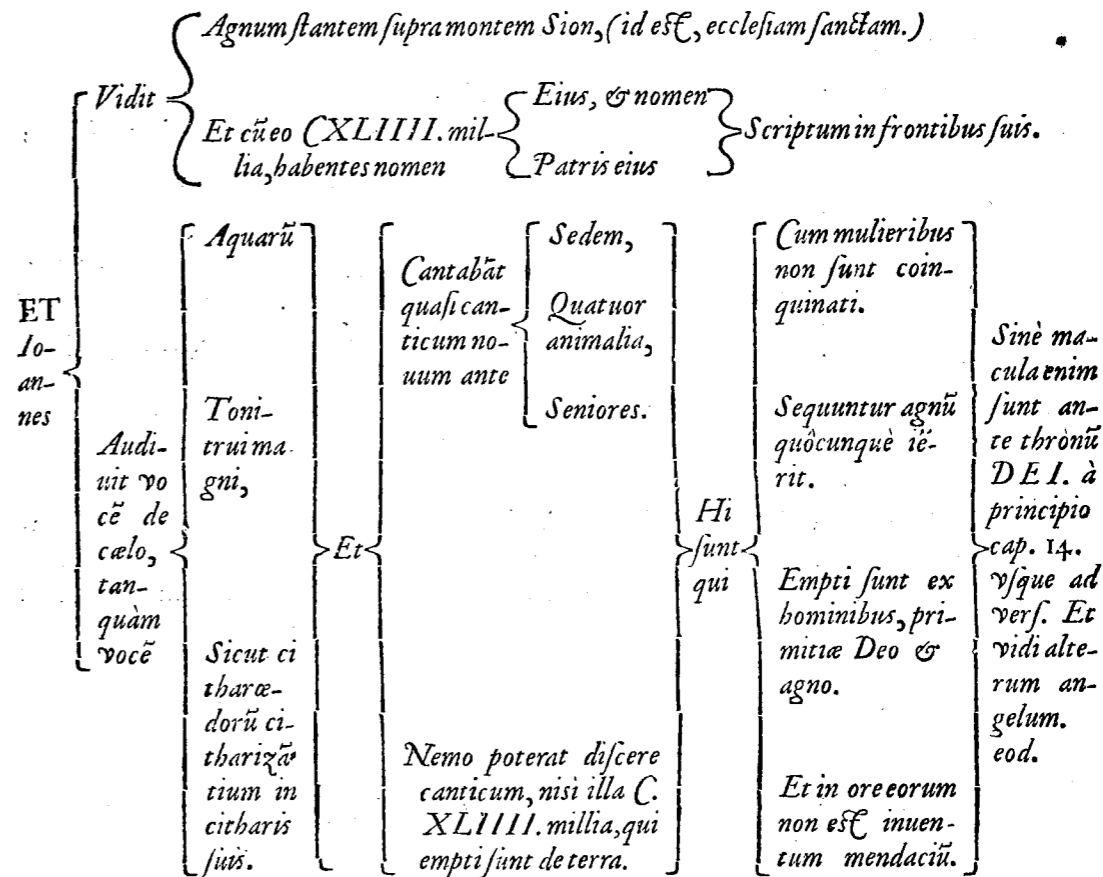 Agnum ſtantem ſupra montem Sion, (id eſt, eccleſiam ſanctam.)
Vidit
Et cũ eo CXLIIII. mil-
lia, habentes nomen
Eius, & nomen
Patris eius
Scriptum in frontibus ſuis.
ET
Io-
an-
nes
Audi-
uit vo
cẽ de
cælo,
tan-
quàm
vocẽ
Aquarũ
Toni-
trui ma
gni,
Sicut ci
tharœ-
dorũ ci-
tharizã
tium in
citharis
ſuis.
Et
Cantabãt
quaſi can-
ticum no-
uum ante
Sedem,
Quatuor
animalia,
Seniores.
Nemo poterat diſcere
canticum, niſi illa C.
XLIIII. millia, qui
empti ſunt de terra.
Hi
ſunt
qui
Cum mulieribus
non ſunt coin-
quinati.
Sequuntur agnũ
quôcunquè ië-
rit.
Empti ſunt ex
hominibus, pri-
mitiæ Deo &
agno.
Et in ore eorum
non eſt inuen-
tum mendaciũ.
Sinè ma-
cula enim
ſunt an-
te thrònũ
DEI. à
principio
cap. 14.
vſque ad
verſ. Et
vidi alte-
rum an-
gelum.
eod.